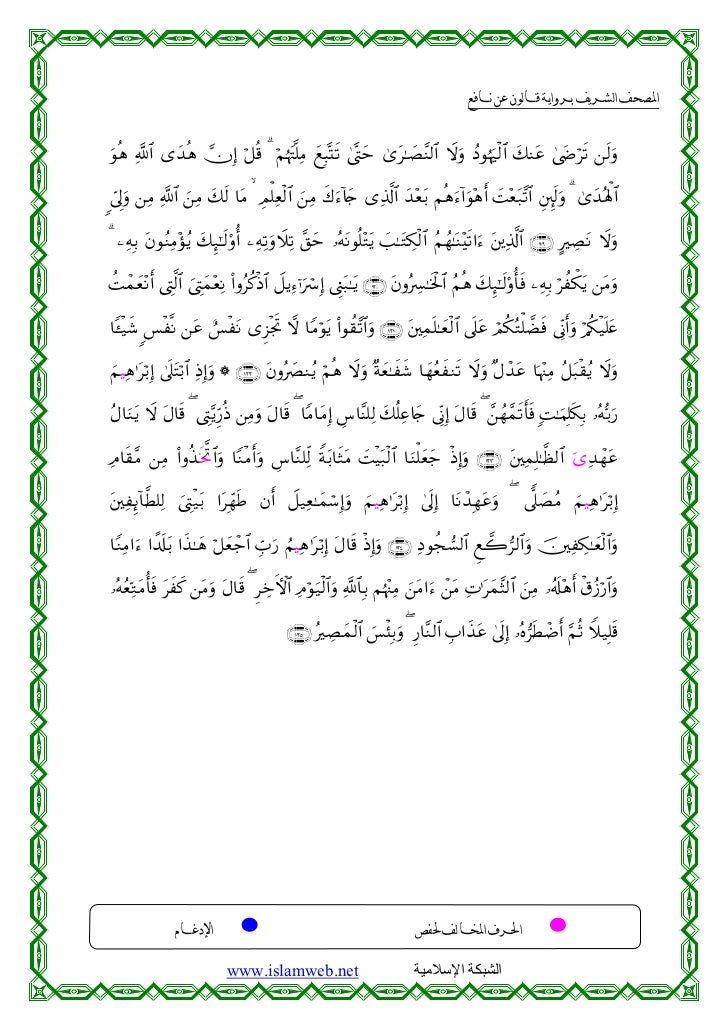 المصحف الشريف برواية قالون عن نافع
وَلَن تَرْضَىٰ عَنكَ ٱلْيَهُودُ وَلَا ٱلنَّصَـٰرَىٰ حَتَّىٰ تَتَّبِعَ مِلَّتَهُمْ ۗ قُلْ إِنَّ هُدَى ٱللَّهِ هُوَ
ٱلْهُدَىٰ ۗ وَلَئِنِ ٱتَّبَعْتَ أَهْوَآءَهُم بَعْدَ ٱلَّذِى جَآءَكَ مِنَ ٱلْعِلْمِ ۙ مَا لَكَ مِنَ ٱللَّهِ مِن وَلِىٍّ
وَلَا نَصِيرٍ ﴿١١٩﴾ ٱلَّذِينَ ءَاتَيْنَـٰهُمُ ٱلْكِتَـٰبَ يَتْلُونَهُۥ حَقَّ تِلَاوَتِهِۦٓ أُو۟لَـٰٓئِكَ يُؤْمِنُونَ بِهِۦ ۗ
وَمَن يَكْفُرْ بِهِۦ فَأُو۟لَـٰٓئِكَ هُمُ ٱلْخَـٰسِرُونَ ﴿١٢٠﴾ يَـٰبَنِىٓ إِسْرَٰٓءِيلَ ٱذْكُرُوا۟ نِعْمَتِىَ ٱلَّتِىٓ أَنْعَمْتُ
عَلَيْكُمْ وَأَنِّى فَضَّلْتُكُمْ عَلَى ٱلْعَـٰلَمِينَ ﴿١٢١﴾ وَٱتَّقُوا۟ يَوْمًا لَّا تَجْزِى نَفْسٌ عَن نَّفْسٍ شَيْـًٔا
وَلَا يُقْبَلُ مِنْهَا عَدْلٌ وَلَا تَنفَعُهَا شَفَـٰعَةٌ وَلَا هُمْ يُنصَرُونَ ﴿١٢٢﴾ ۞ وَإِذِ ٱبْتَلَىٰٓ إِبْرَٰهِيمَ
رَبُّهُۥ بِكَلِمَـٰتٍ فَأَتَمَّهُنَّ ۖ قَالَ إِنِّى جَاعِلُكَ لِلنَّاسِ إِمَامًا ۖ قَالَ وَمِن ذُرِّيَّتِى ۖ قَالَ لَا يَنَالُ
عَهْدِىَ ٱلظَّـٰلِمِينَ ﴿١٢٣﴾ وَإِذْ جَعَلْنَا ٱلْبَيْتَ مَثَابَةً لِّلنَّاسِ وَأَمْنًا وَٱتَّخَذُوا۟ مِن مَّقَامِ
إِبْرَٰهِيمَ مُصَلًّى ۖ وَعَهِدْنَآ إِلَىٰٓ إِبْرَٰهِيمَ وَإِسْمَـٰعِيلَ أَن طَهِّرَا بَيْتِىَ لِلطَّآئِفِينَ
وَٱلْعَـٰكِفِينَ وَٱلرُّكَّعِ ٱلسُّجُودِ ﴿١٢٤﴾ وَإِذْ قَالَ إِبْرَٰهِيمُ رَبِّ ٱجْعَلْ هَـٰذَا بَلَدًا ءَامِنًا
وَٱرْزُقْ أَهْلَهُۥ مِنَ ٱلثَّمَرَٰتِ مَنْ ءَامَنَ مِنْهُم بِٱللَّهِ وَٱلْيَوْمِ ٱلْـَٔاخِرِ ۖ قَالَ وَمَن كَفَرَ فَأُمَتِّعُهُۥ
قَلِيلًا ثُمَّ أَضْطَرُّهُۥٓ إِلَىٰ عَذَابِ ٱلنَّارِ ۖ وَبِئْسَ ٱلْمَصِيرُ ﴿١٢٥﴾
الحرف المخالف لحفص الإدغام
الشبكة الإسلامية www.islamweb.net